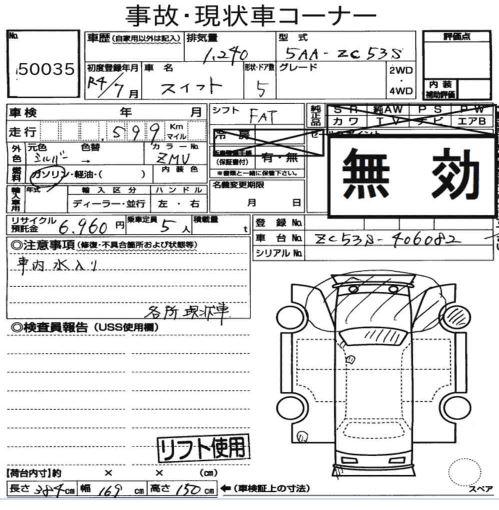 事故・現状車コーナー
No.
50035
車歴 (自家用以外は記入)
排気量
1,240
型式
5AA-ZC53S
評価点
初度登録年月
R4/7月
車名
スイフト
形状・ドア数
5
グレード
2WD・4WD
内装補助評価
車検 年 月
シフト FAT
純正品
SR 純AW PS PW
カワ TV ナビ エアB
走行 599 Km マイル
冷房
セールスポイント
無効
外色 元色 シルバー 色替 → カラーNo. ZMU
有・無
燃料 ガソリン・軽油・( ) 内装色
名義変更期限
月 日
輸入車用 年式 輸入区分 ハンドル
ディーラー・並行 左・右
リサイクル預託金 6,960円 乗車定員 5人 積載量 t
登録No.
車台No. ZC53S-406082
シリアルNo.
◎注意事項 (修復・不具合箇所および状態等)
車内水入り
各所現状車
◎検査員報告 (USS使用欄)
リフト使用
【荷台内寸】約 × × (cm)
長さ 384cm 幅 169cm 高さ 150cm ←(車検証上の寸法)
スペア